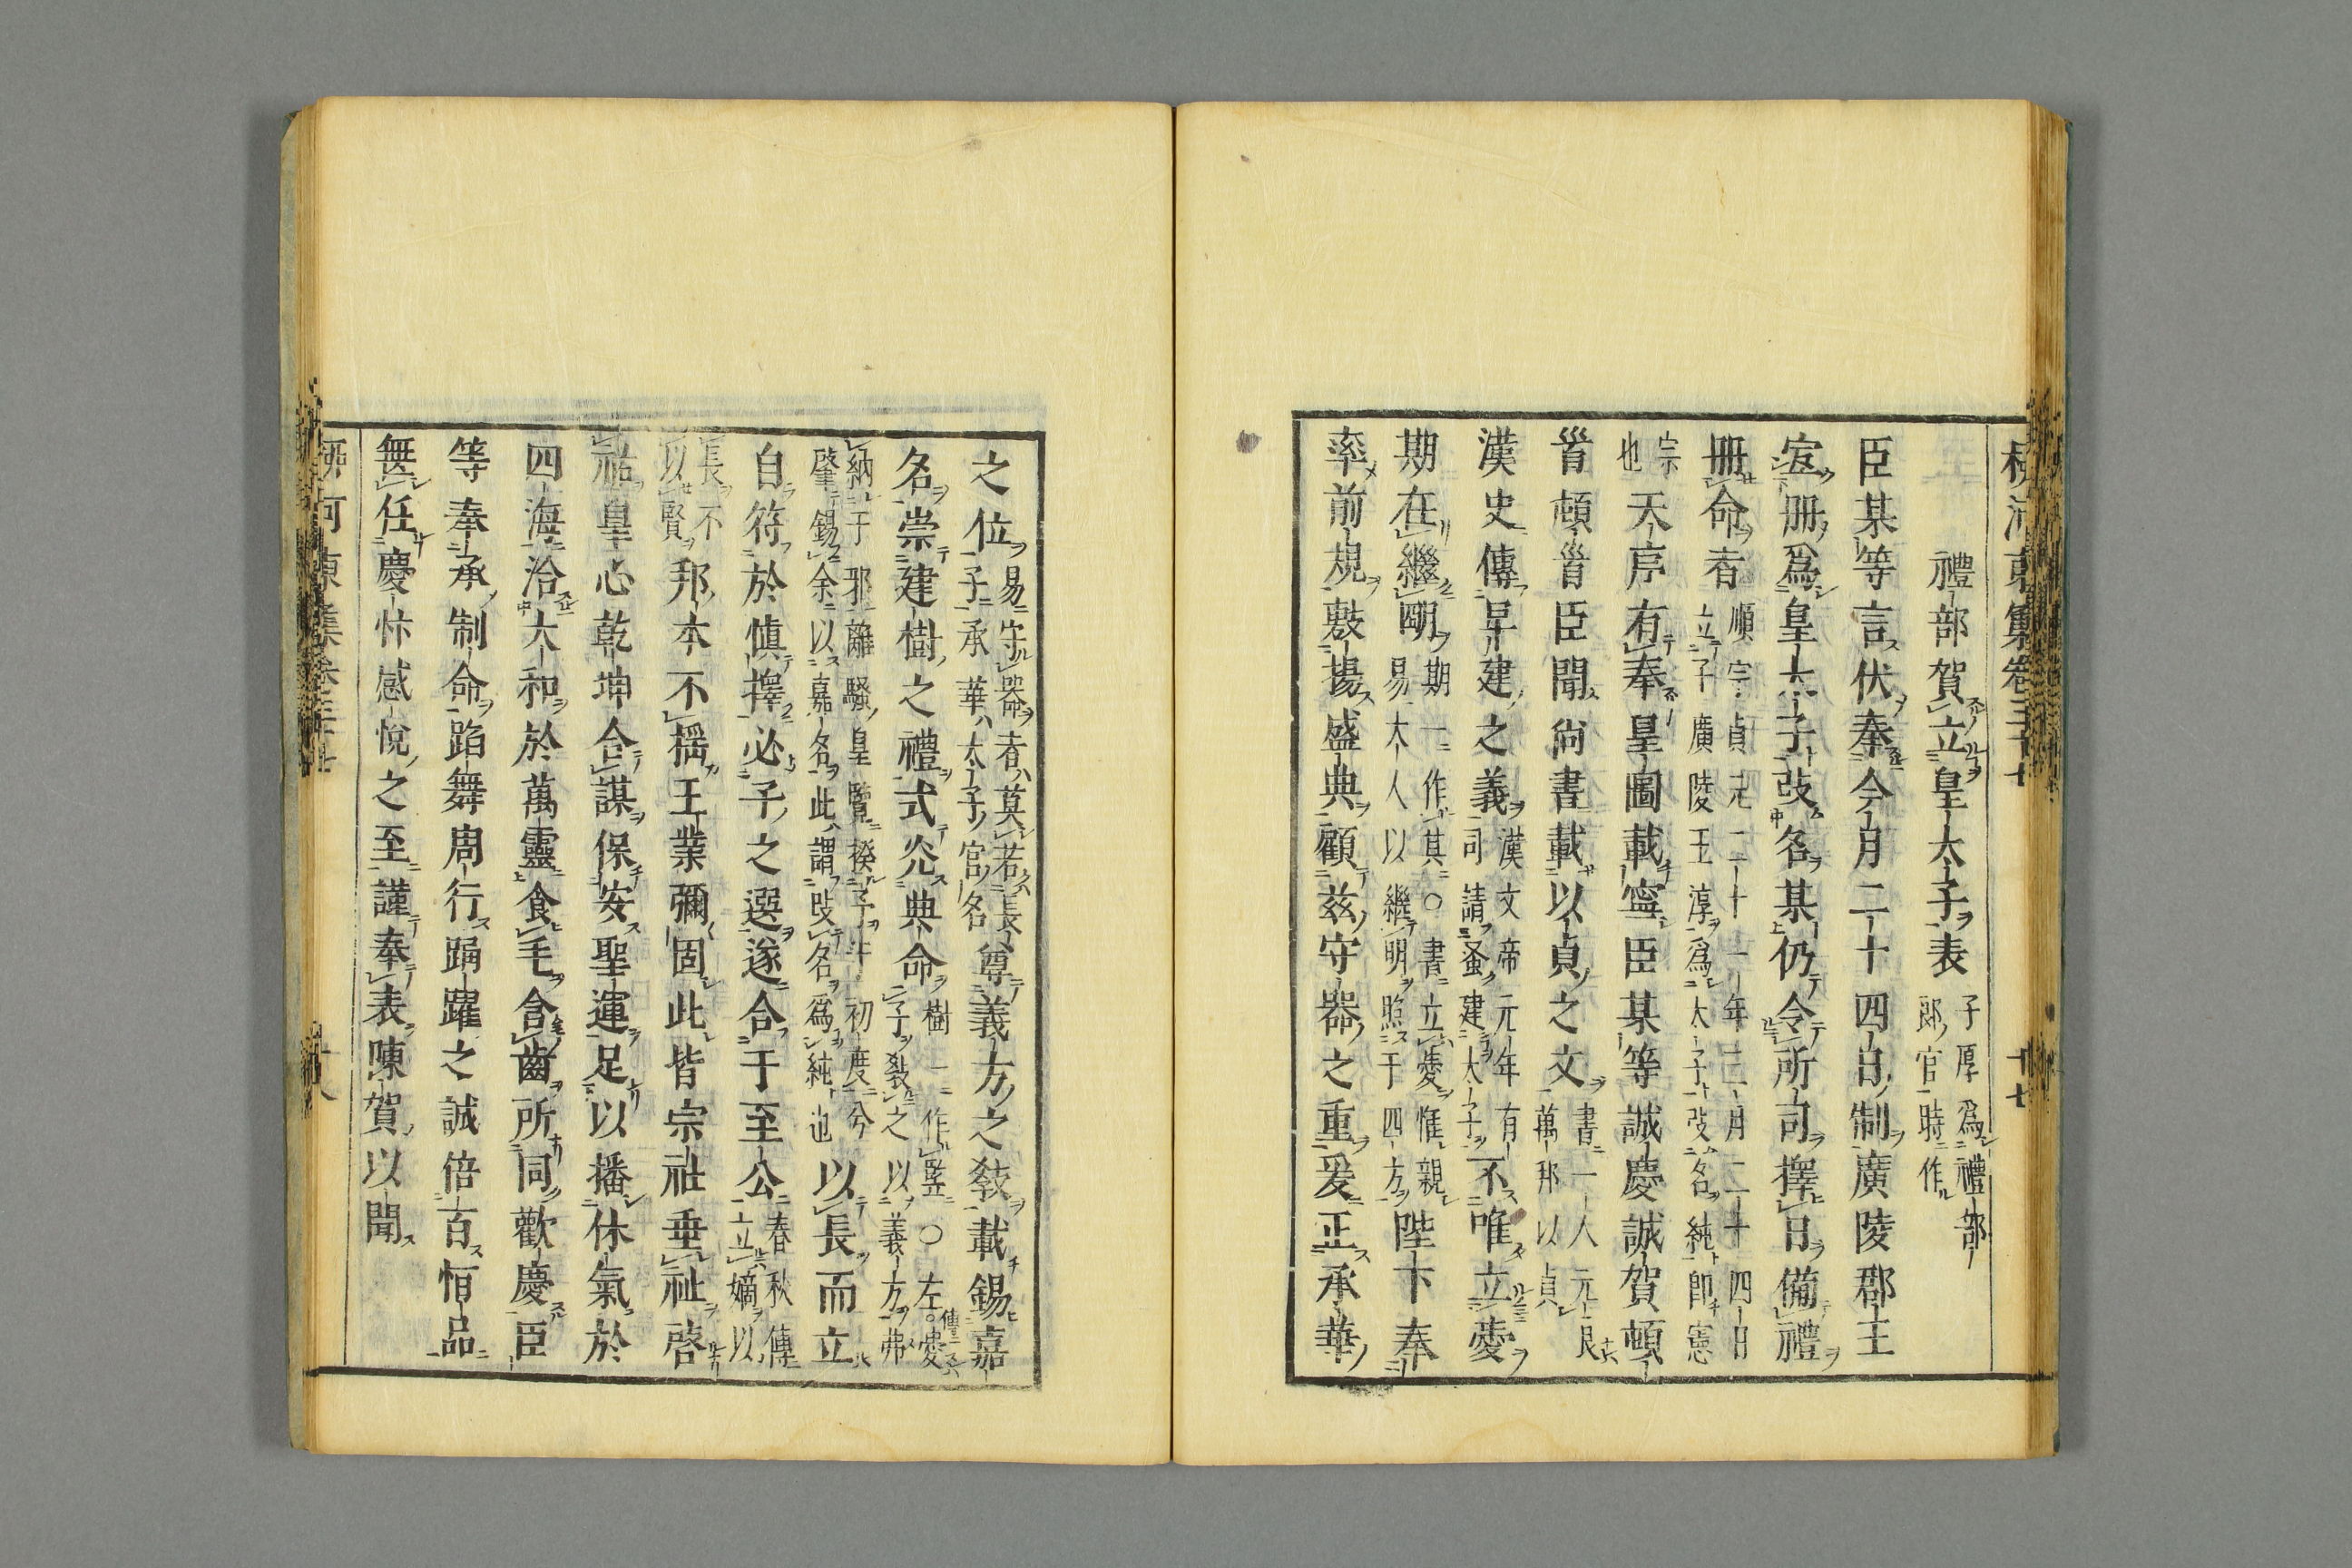 柳河東集卷三十七
十七
禮部賀立皇太子表 子厚爲禮部郞官時作
臣某等言伏奉今月二十四日制廣陵郡王
宐册爲皇太子改名某仍令所司擇日備禮
册命者 順宗貞元二十一年三月二十四日立子廣陵王淳爲太子改名純卽憲
宗也 天序有奉皇圖載寧臣某等誠慶誠賀頓
首頓首臣聞尙書載以貞之文 書一人元良萬邦以貞
漢史傳早建之義 漢文帝元年有司請蚤建太子 不唯立愛
期在繼明 期一作其○書立愛惟親易大人以繼明照于四方 陛下奉
率前規敷揚盛典顧茲守器之重爰正承華
之位 易守器者莫若長子承華太子官名 尊義方之敎載錫嘉
名崇建樹之禮式光典命 樹一作監○左傳愛子敎之以義方弗
納于邪離騷皇覽揆予于初度兮肇錫余以嘉名此謂改名爲純也 以長而立
自符於愼擇必子之選遂合于至公 春秋傳立嫡以
長不以賢 邦本不搖王業彌固此皆宗社垂祉啓
祐皇心乾坤合謀保安聖運足以播休氣於
四海洽大和於萬靈食毛含齒所同歡慶臣
等奉承制命蹈舞周行踊躍之誠倍百恒品
無任慶忭感悅之至謹奉表陳賀以聞
柳河東集卷三十七
十八